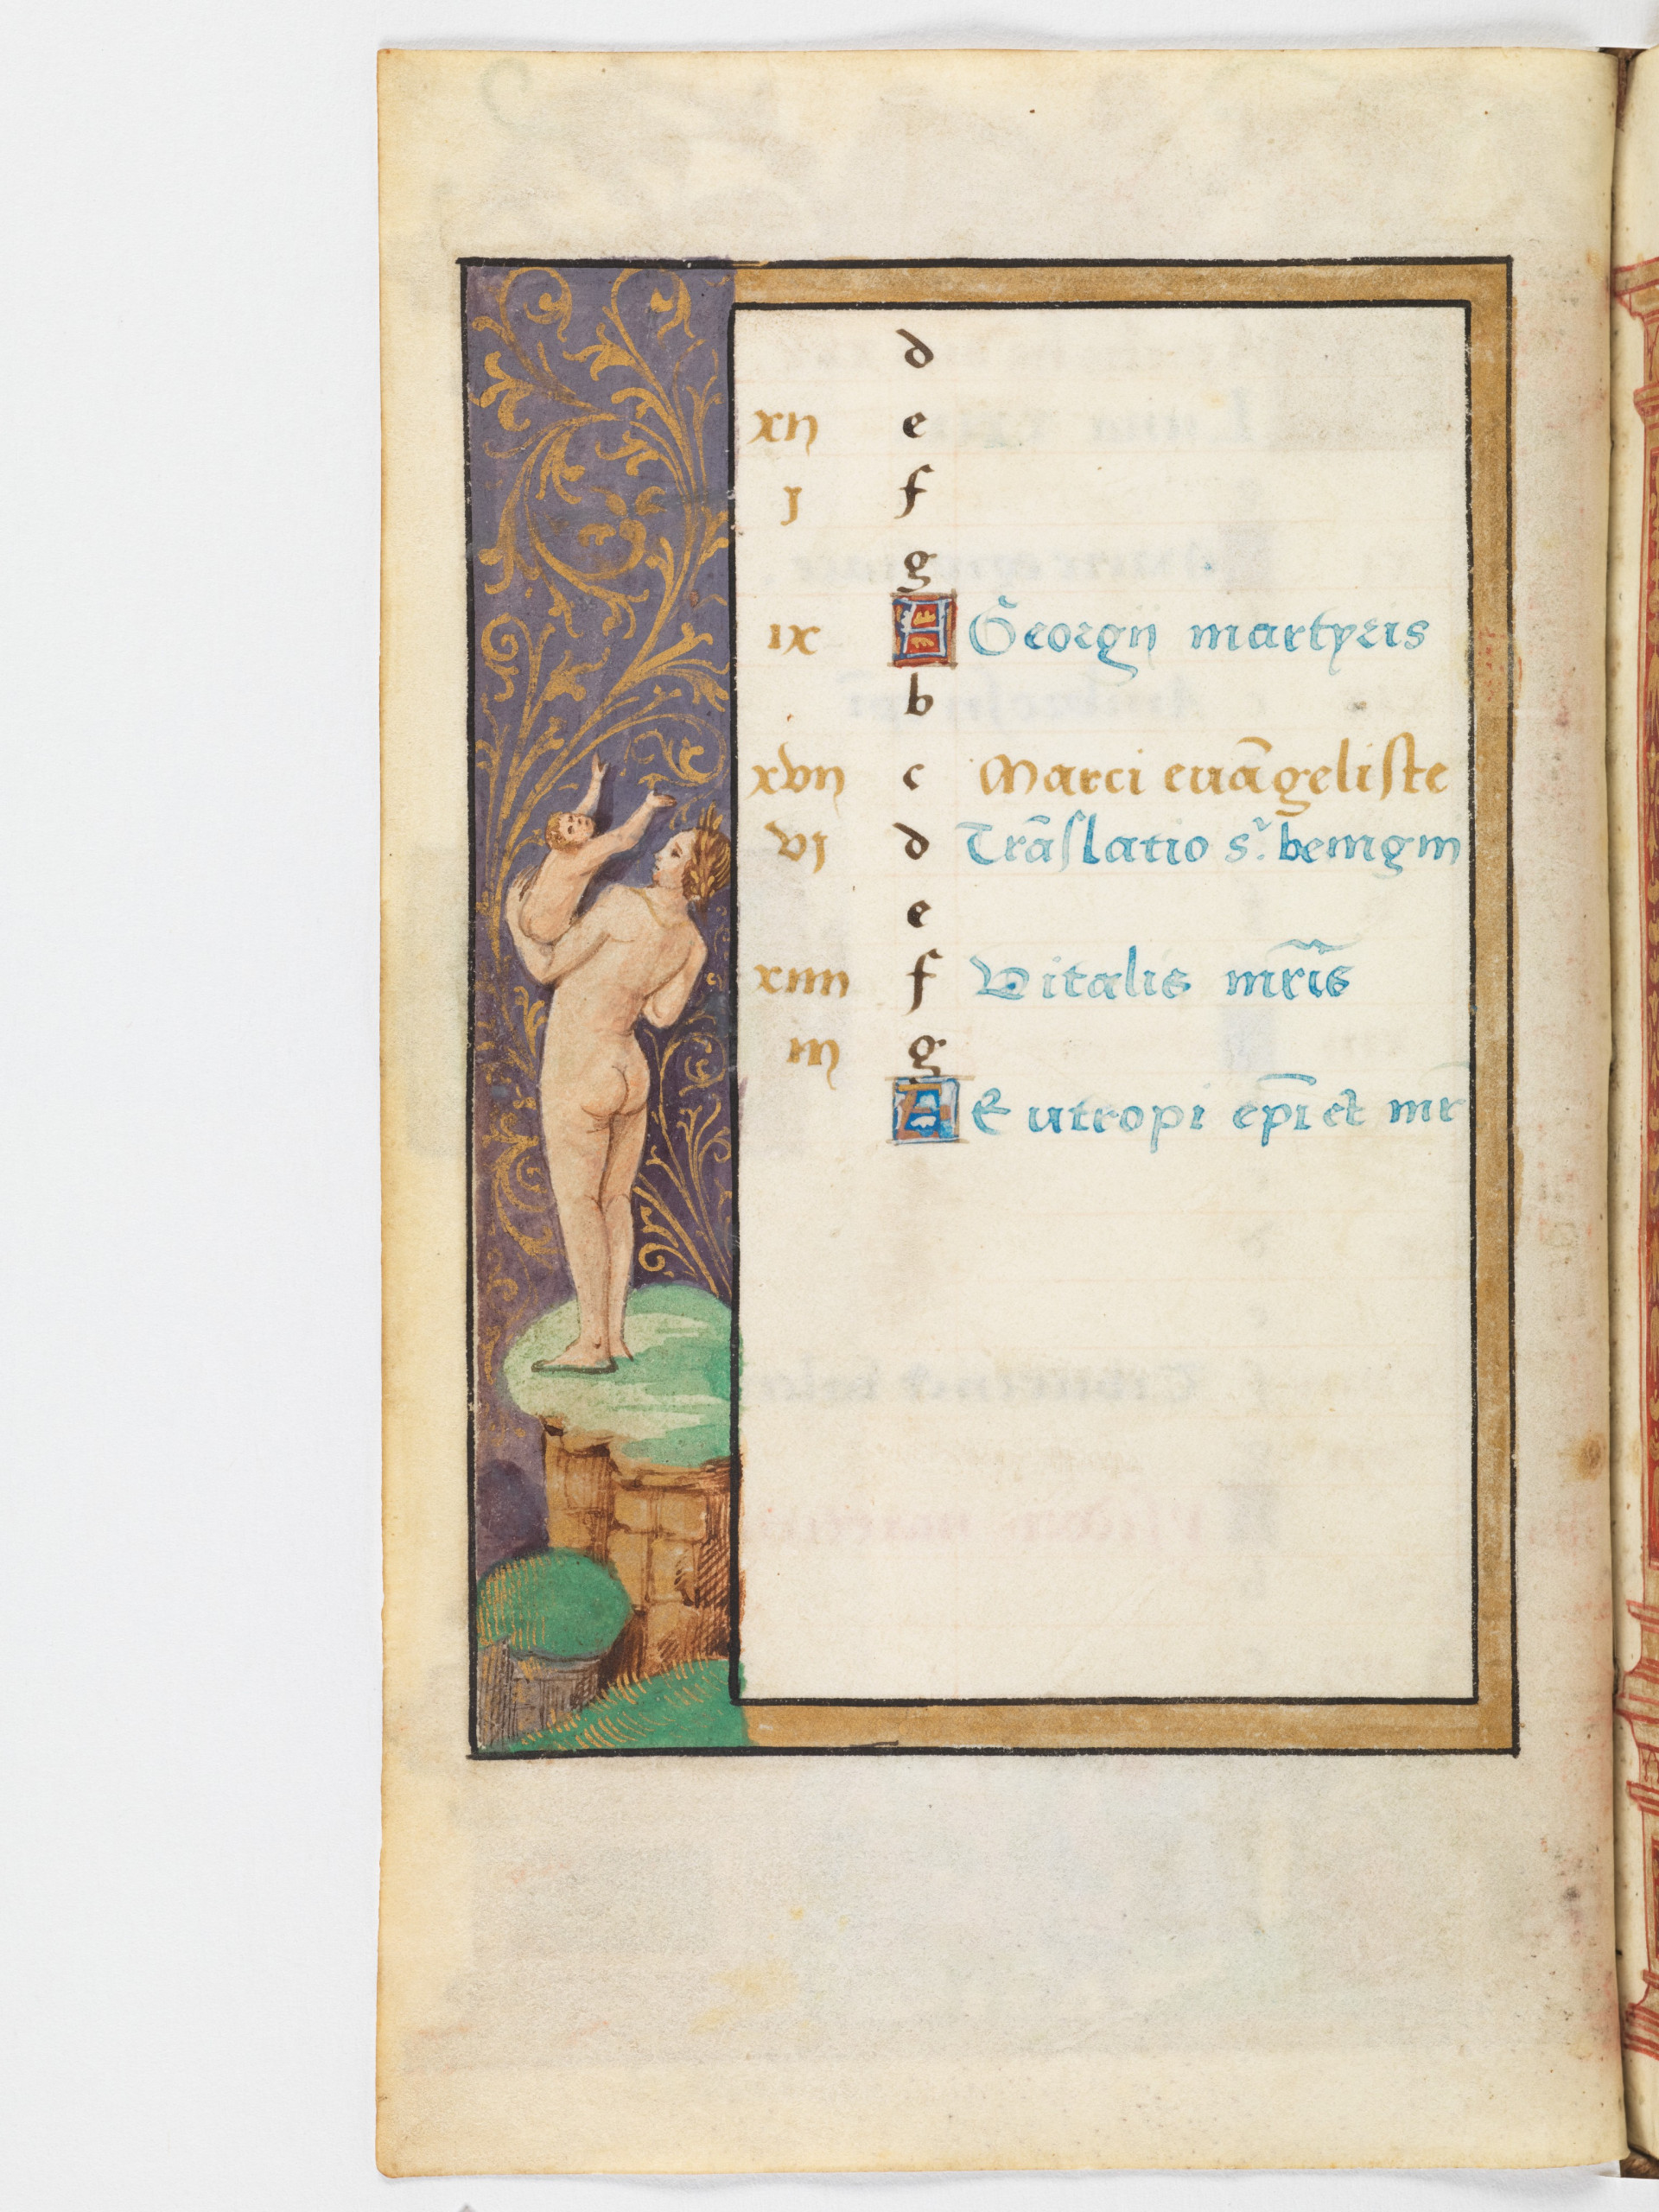 d
xij e
j f
g
ix A Georgij martyris
b
xvij c Marci evāgeliste
vj d Trāslatio s. benigni
e
xiiij f Vitalis mr̄is
iij g
A Eutropi ep̄i et mr̄